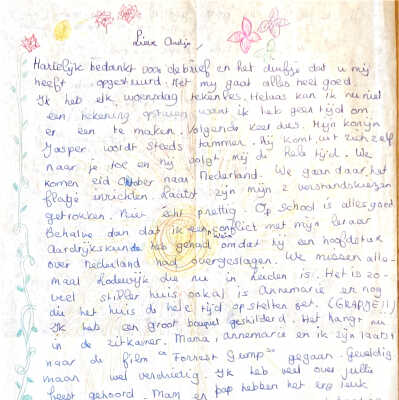 Lieve Oudjes,
Hartelijk bedankt voor de brief en het duifje dat u mij
heeft opgestuurd. Met my gaat alles heel goed.
Ik heb elk woensdag tekenles. Helaas kan ik nu niet
een tekening opsturen want ik heb geen tijd om
er een te maken. Volgende keer dus. Mijn konijn
Jasper wordt steeds tammer. Hij komt uit zich zelf
naar je toe en hij volgt mij de hele tijd. We
komen eid October naar Nederland. We gaan daar het
flatje inrichten. Laatst zijn mijn 2 verstandskiezen
getrokken. Niet echt prettig. Op school is alles goed.
Behalve dan dat ik een klein conflict met mijn leraar
Aardrijkskunde heb gehad omdat hij een hoofdstuk
over Nederland had overgeslagen. We missen alle-
maal Lodewijk die nu in Leiden is. Het is zo-
veel stiller huis ook al is Annemarie er nog
die het huis de hele tijd op stelten zet. (GRAPJE!!)
Ik heb een groot bouquet geschilderd. Het hangt nu
in de zitkamer. Mama, annemarie en ik zijn laatst
naar de film "Forrest Gump" gegaan. Geweldig
maar wel verdrietig. Ik heb veel over jullie
feest gehoord. Mam en pap hebben het erg leuk